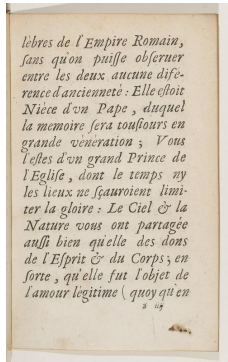 lèbres de l'Empire Romain,
ſans qu'on puiſſe obſeruer
entre les deux aucune dife-
rence d'ancienneté : Elle eſtoit
Nièce d'vn Pape, duquel
la memoire ſera touſiours en
grande vénération ; Vous
l'eſtes d'vn grand Prince de
l'Egliſe, dont le temps ny
les lieux ne ſçauroient limi-
ter la gloire : Le Ciel & la
Nature vous ont partagée
auſſi bien qu'elle des dons
de l'Eſprit & du Corps ; en
ſorte, qu'elle fut l'objet de
l'amour légitime ( quoy qu'en
ã iij